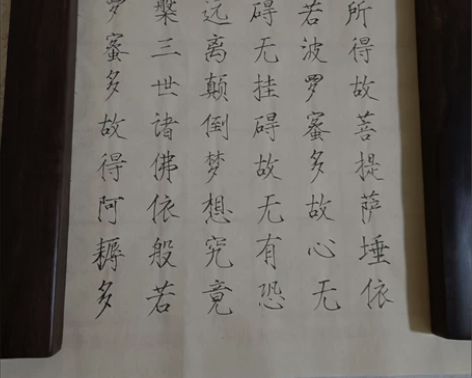 所得故菩提萨埵依
若波罗蜜多故心无
碍无挂碍故无有恐
远离颠倒梦想究竟
槃三世诸佛依般若
罗蜜多故得阿耨多